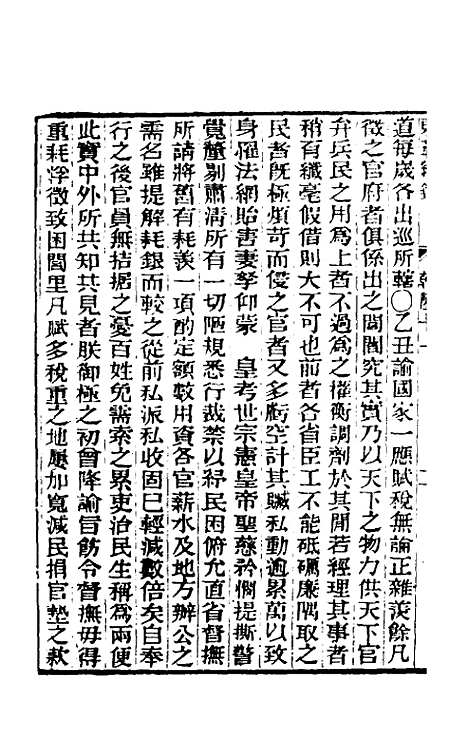 道每歲各出巡所轄〇乙丑諭國家一應賦稅無論正雜羨餘凡
徵之官府者俱係出之閭閻究其實乃以天下之物力供天下官
弁兵民之用爲上者不過爲之權衡調劑於其間若經理其事者
稍有纖毫假借則大不可也前者各省臣工不能砥礪廉隅取之
民者旣極煩苛而侵之官者又多虧空計其贓私動逾累萬以致
身罹法網貽害妻孥仰蒙　皇考世宗憲皇帝聖慈矜憫提撕警
覺釐剔肅淸所有一切陋規悉行裁禁以紓民困俯允直省督撫
所請將舊有耗羨一項酌定額數用資各官薪水及地方辦公之
需名雖提解耗銀而較之從前私派私收固已輕減數倍矣自奉
行之後官員無拮据之憂百姓免需索之累吏治民生稱爲兩便
此實中外所共知共見者朕御極之初曾降諭旨飭令督撫毋得
重耗浮徵致困閭里凡賦多稅重之地屢加寬減民捐官墊之款